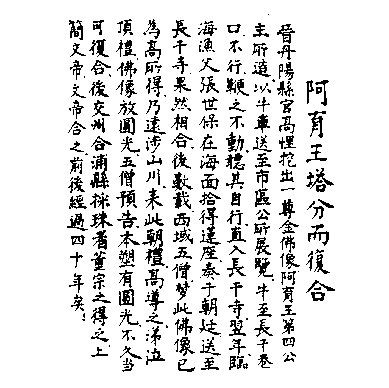 阿育王塔分而復合
晉丹陽縣官高悝挖出一尊金佛像阿育王第四公
主所造以牛車送至市區公所展覽、牛至長干巷
口不行鞭之不動聽其自行直入長干寺翌年臨
海漁父張世係在海面拾得蓮座奏于朝廷送至
長干寺果然相合後數載西域五僧夢此佛像已
為高所得乃遠涉山川來此朝禮高導之涕泣
頂禮佛像放圓光五僧預告本塑有圓光不久當
可復合後交州合浦縣採珠者董宗之得之上
簡文帝文帝合之前後經過四十年矣!